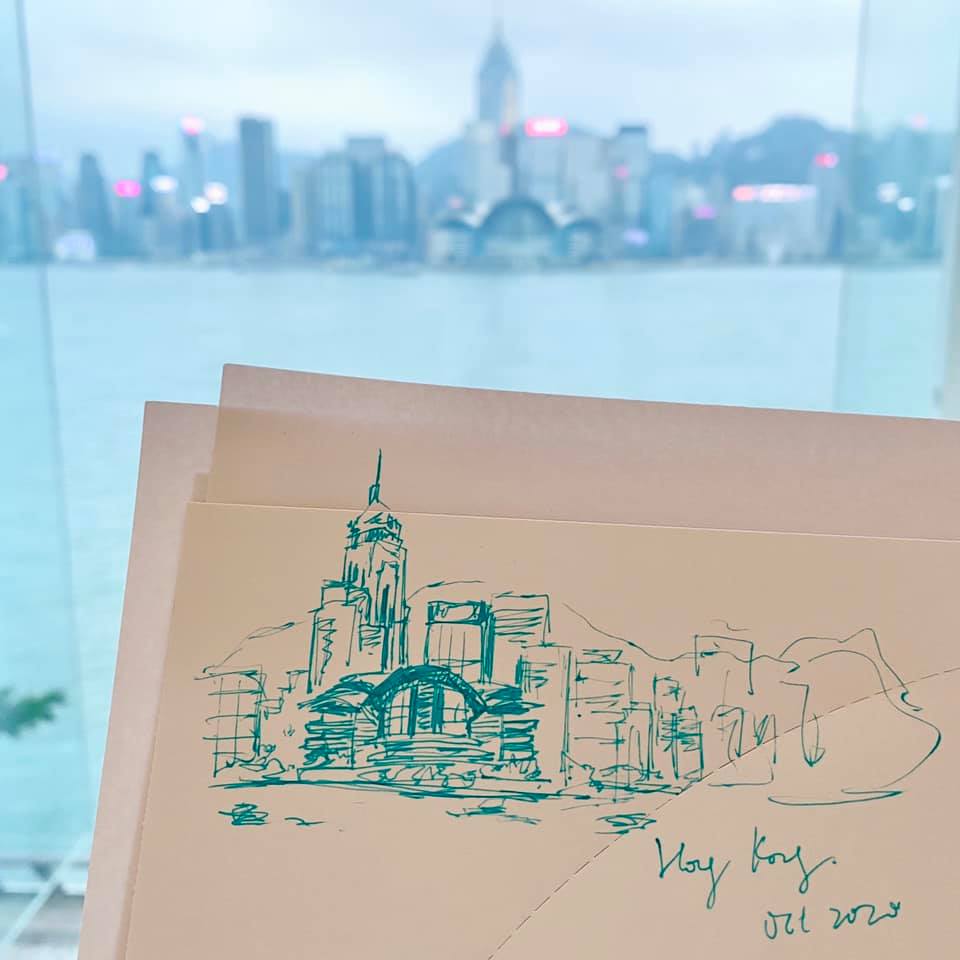 Hong Kong.
Oct 2020